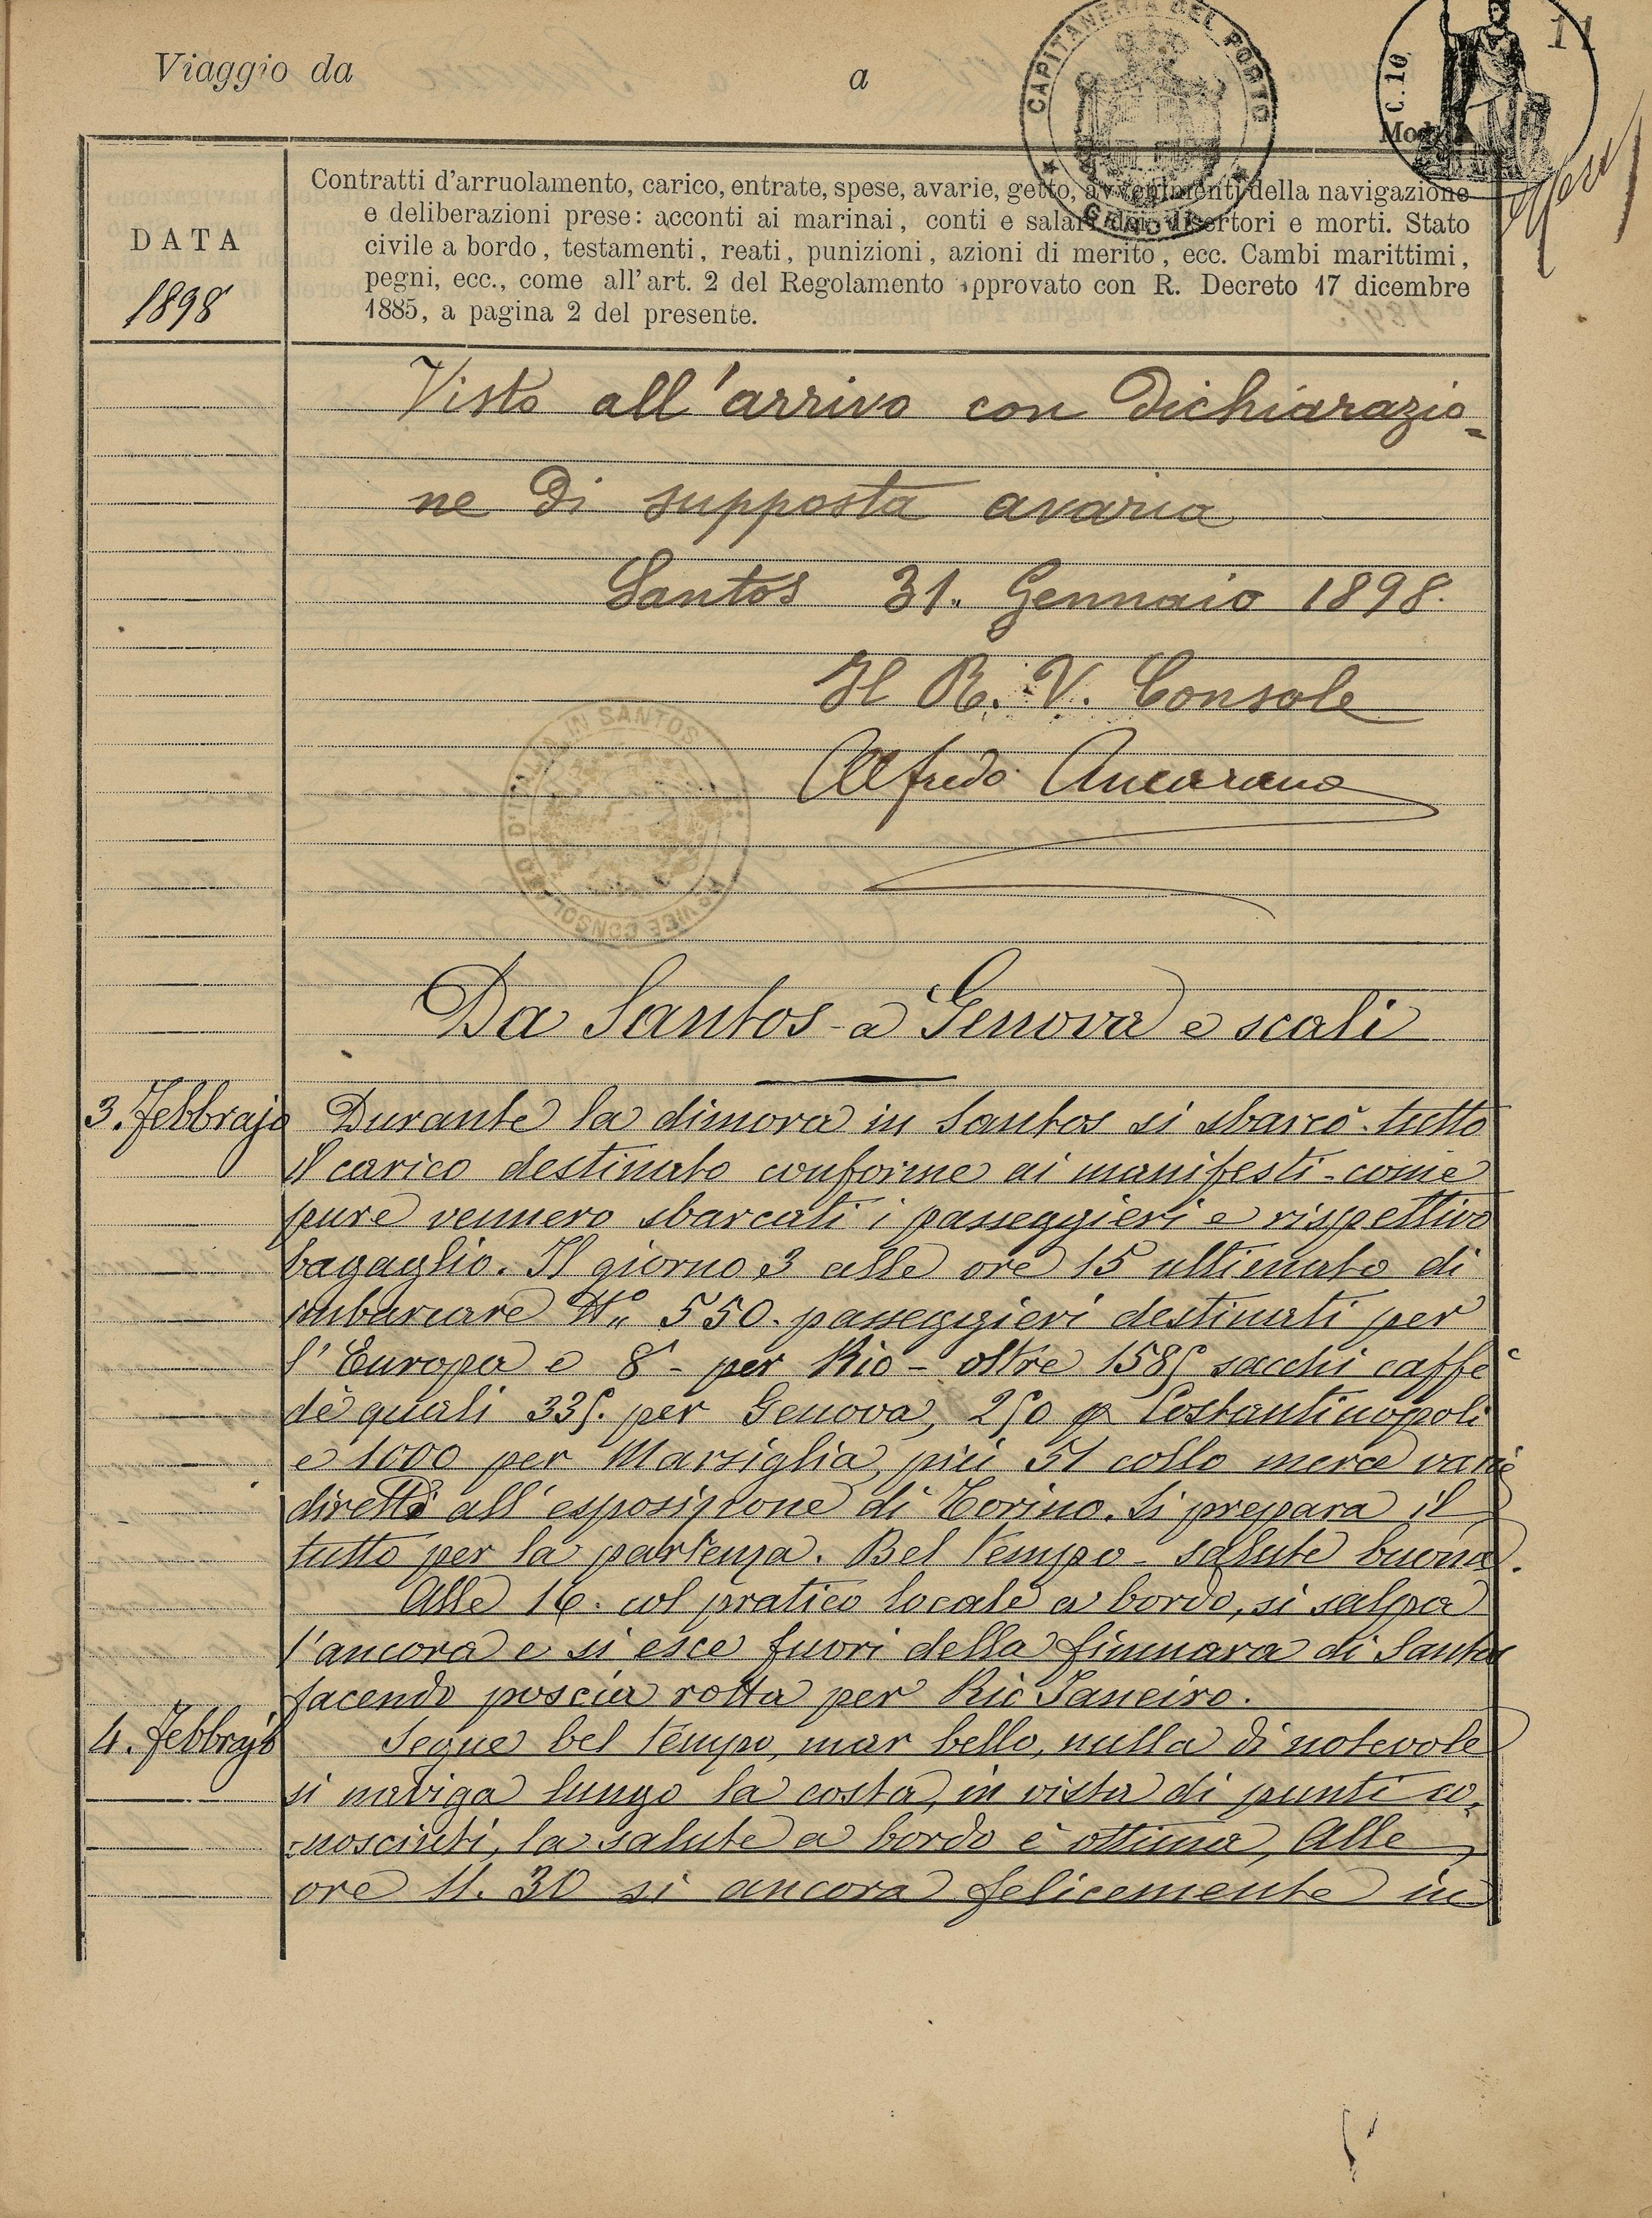 11
Viaggio da a
CAPITANERIA DEL PORTO
GENOVA
C. 10
Mod.
DATA
1898
Contratti d'arruolamento, carico, entrate, spese, avarie, getto, avvenimenti della navigazione
e deliberazioni prese: acconti ai marinai, conti e salari dei disertori e morti. Stato
civile a bordo, testamenti, reati, punizioni, azioni di merito, ecc. Cambi marittimi,
pegni, ecc., come all'art. 2 del Regolamento approvato con R. Decreto 17 dicembre
1885, a pagina 2 del presente.
Visto all'arrivo con dichiarazio=
ne di supposta avaria
Santos 31. Gennaio 1898.
Il R. V. Console
Alfredo Ancarano
R. VICE CONSOLATO D'ITALIA IN SANTOS
Da Santos - a Genova e scali
3. Febbrajo Durante la dimora in Santos si sbarcò tutto
il carico destinato conforme ai manifesti - come
pure vennero sbarcati i passeggieri e rispettivo
bagaglio. Il giorno 3 alle ore 15 ultimato di
imbarcare No 550. passeggieri destinati per
l'Europa e 8 - per Rio - oltre 1585 sacchi caffè
dè quali 335. per Genova, 250 p Costantinopoli
e 1000 per Marsiglia, più 51 collo merce varie
diretti all'esposizione di Torino. Si prepara il
tutto per la partenza. Bel tempo - salute buona.
Alle 16. col pratico locale a bordo, si salpa
l'ancora e si esce fuori della fiumara di Santos
facendo poscia rotta per Rio Janeiro.
4. Febbrajo Segue bel tempo, mar bello, nulla di notevole
si naviga lungo la costa, in vista di punti co=
=nosciuti, la salute a bordo è ottima, Alle
ore 11. 30 si ancora felicemente in